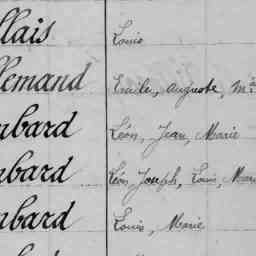 llais Louis
llemand Emile, Auguste, M
mbard Léon, Jean, Marie
mbard Léon, Joseph, Louis, Mari
mbard Louis, Marie